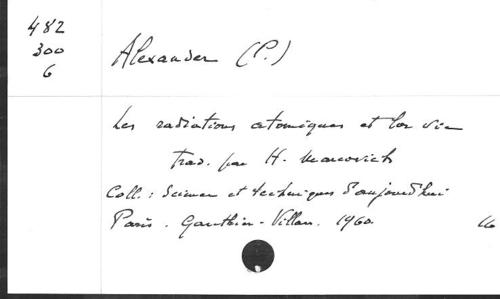 482
300
6
Alexander (P.)
Les radiations atomiques et la vie
Trad. par H. Marcovich
Coll. : Science et techniques d'aujourd'hui
Paris. Gauthier-Villars. 1960.